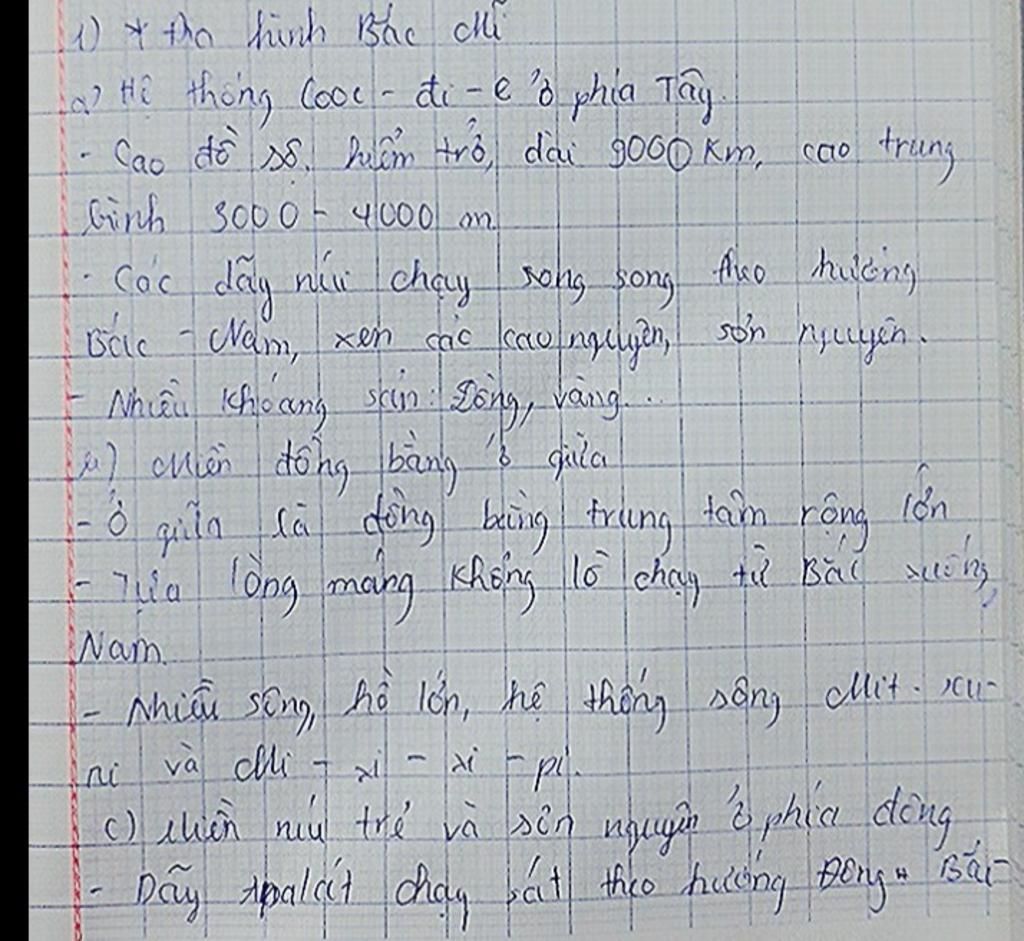 1) * Địa hình Bắc Mĩ
a) Hệ thống Cooc - đi - e ở phía Tây.
- Cao đồ sộ, hiểm trở, dài 9000 km, cao trung
bình 3000 - 4000 m
- Các dãy núi chạy song song theo hướng
Bắc - Nam, xen các cao nguyên, sơn nguyên.
- Nhiều khoáng sản: Đồng, vàng...
b) Miền đồng bằng ở giữa
- Ở giữa là đồng bằng trung tâm rộng lớn
- Tựa lòng máng khổng lồ chạy từ Bắc xuống
Nam.
- Nhiều sông, hồ lớn, hệ thống sông Mit-xu-
ri và Mi - xi - xi - pi.
c) Miền núi trẻ và sơn nguyên ở phía đông
- Dãy Apalát chạy sát theo hướng Đông - Bắc -